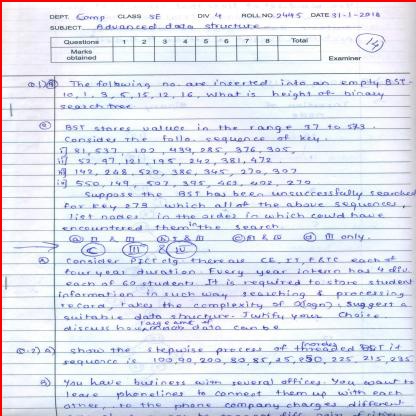 DEPT. Comp CLASS SE DIV 4 ROLL NO. 2445 DATE 31-1-2018
SUBJECT Advanced data structure
Questions 1 2 3 4 5 6 7 8 Total
Marks obtained
Examiner
14
Q1) The following no. are inserted into an empty BST-
10, 1, 3, 5, 15, 12, 16, What is height of binary
search tree
BST stores values in the range 37 to 573.
Consider the follo. sequence of key.
i] 81, 537, 102, 439, 285, 376, 305,
ii] 52, 97, 121, 195, 242, 381, 472
iii] 142, 248, 520, 386, 345, 270, 307
iv] 550, 149, 507, 395, 463, 402, 270
Suppose the BST has been unsuccessfully searched
for key 273. which all of the above sequences,
list nodes in the order in which could have
encountered them in the search.
a) II & III b) I & III c) III & IV d) III only.
C III & IV
Consider PICT clg there are CE, IT, E&TC each of
four year duration. Every year intern has 4 div.
each of 60 students. It is required to store student
information in such way searching & processing
record, takes the complexity of O(logn). Suggest a
suitable data structure. Justify your choice.
discuss how data can be
Q-2) A) show the stepwise process of threaded BST if
sequence is 100, 90, 200, 80, 85, 250, 225, 215, 235
B) You have business with several offices. You want to
lease phonelines to connect them up with each
other, to the phone company charges different